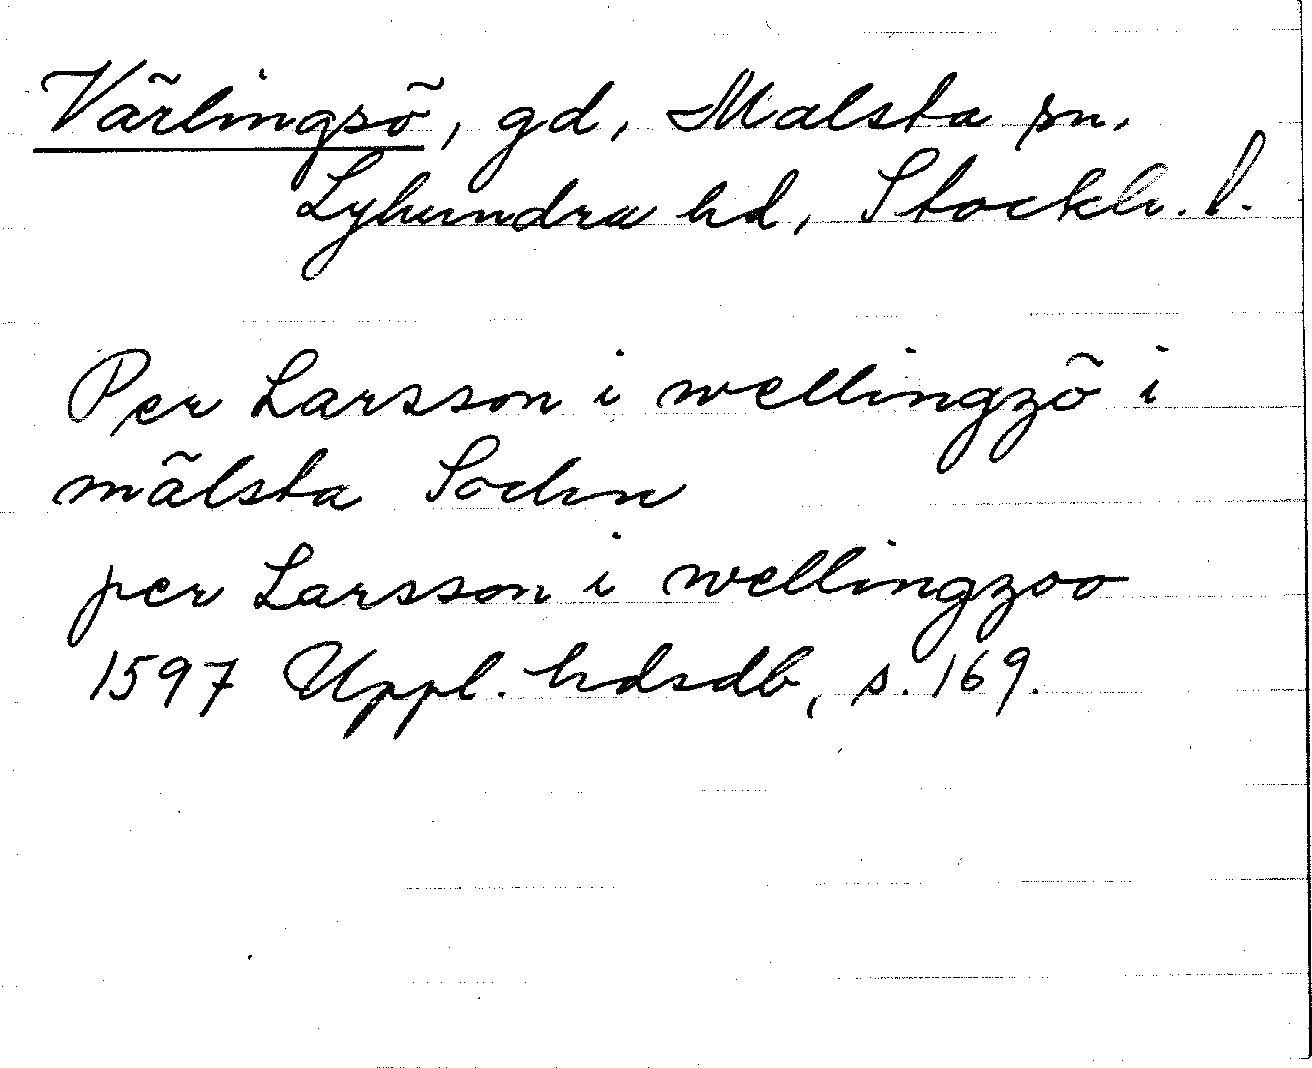 Värlingsö, gd, Malsta sn.
Lyhundra hd, Stockh. l.
Per Larsson i wellingzö i
mälsta Sochn
per Larsson i wellingzoo
1597 Uppl. hdsdb, s. 169.